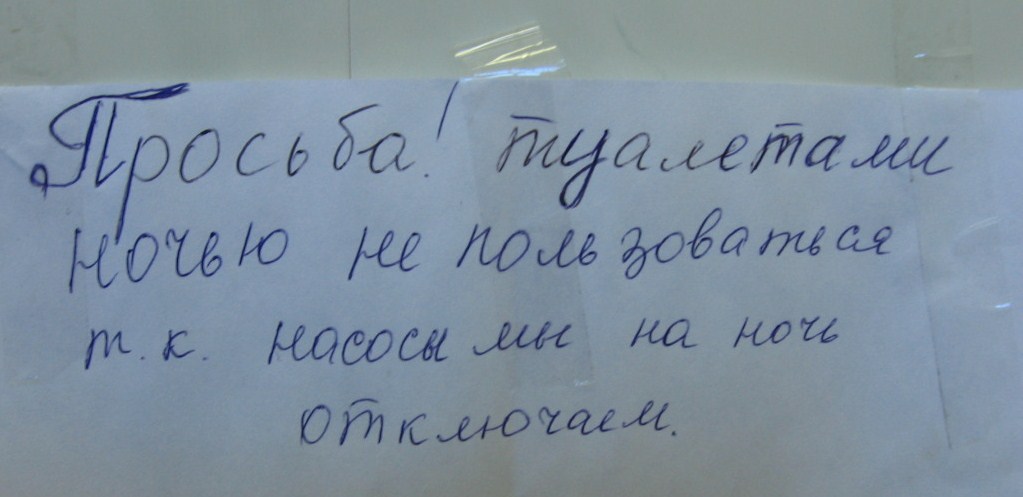 Просьба! туалетами
ночью не пользоваться
т.к. насосы мы на ночь
отключаем.